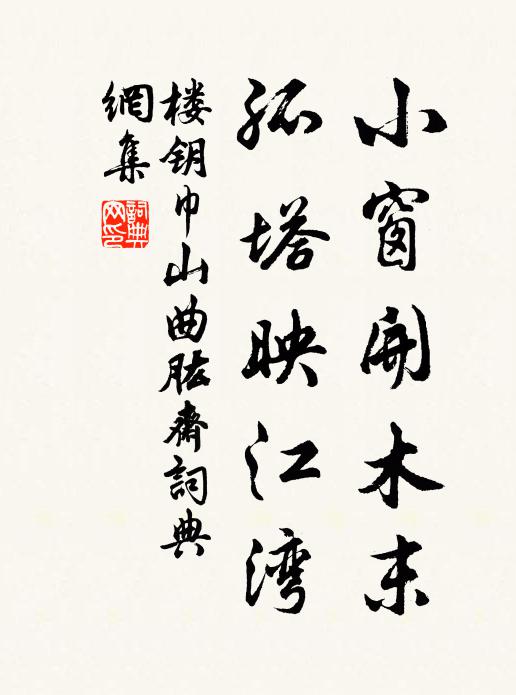 小窗開木末
孤塔映江湾
楼钥巾山曲肱斋詞典
網集
詞典网印